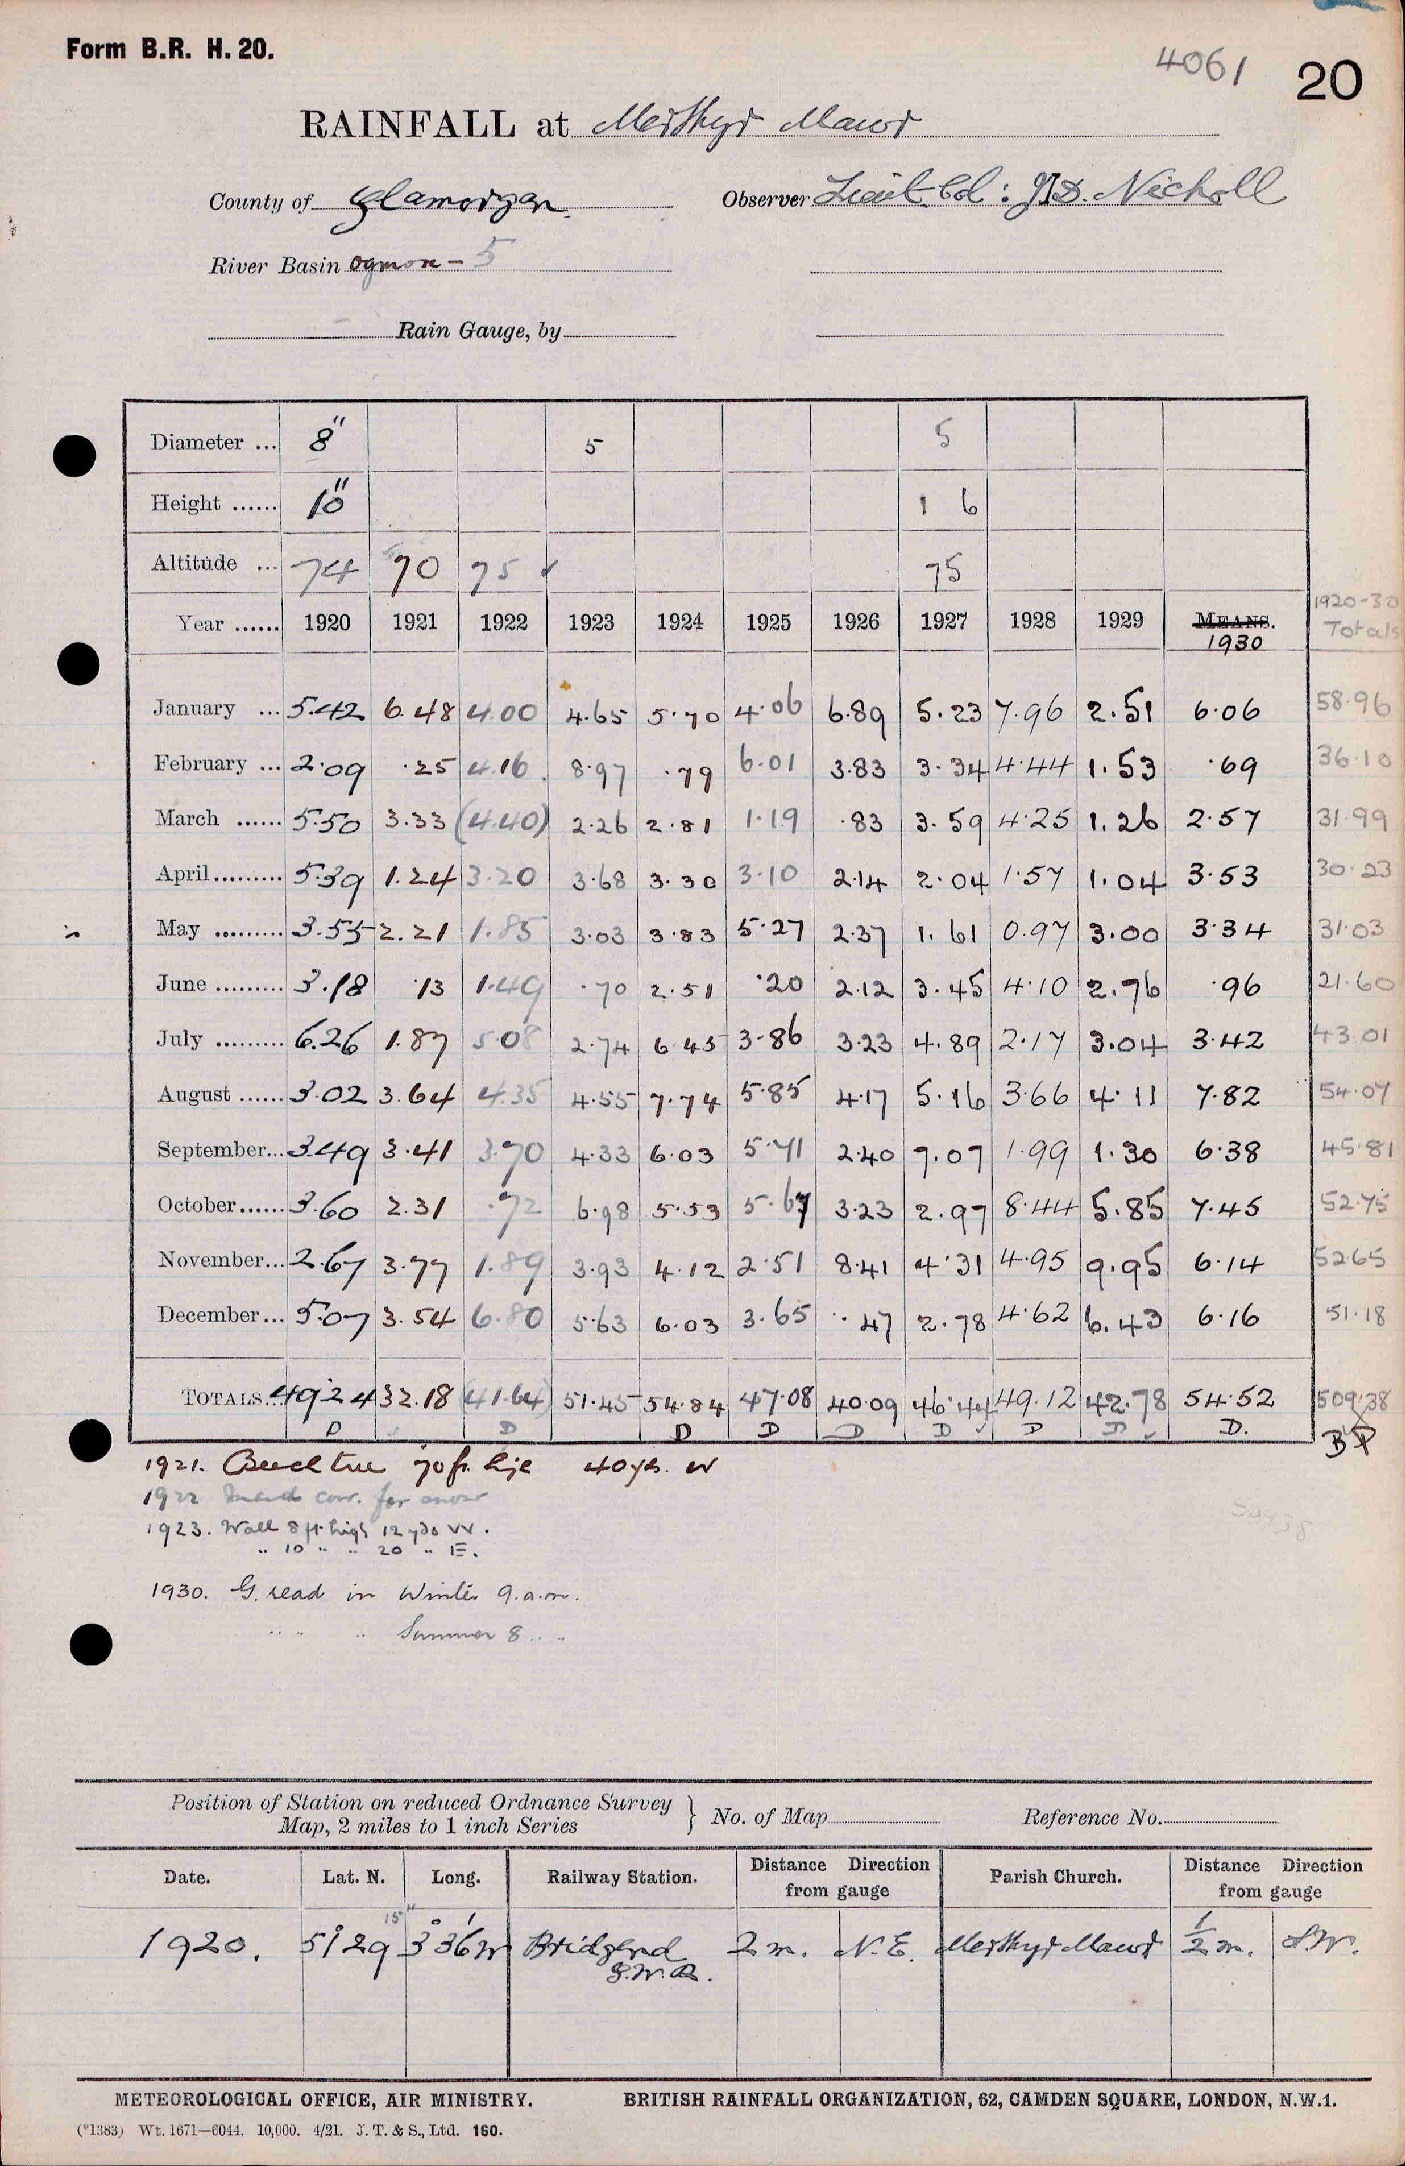 Form B.R. H. 20.
4061
20
RAINFALL at Merthyr Mawr
County of Glamorgan. Observer Lieut. Col: J.I.D. Nicholl
River Basin Ogmore - 5
Rain Gauge, by
Diameter ... 8" 5 5
Height ...... 10" 1 6
Altitude ... 74 70 75 75
Year ...... 1920 1921 1922 1923 1924 1925 1926 1927 1928 1929 MEANS. 1930 1920-30 Totals
January ... 5.42 6.48 4.00 4.65 5.70 4.06 6.89 5.23 7.96 2.51 6.06 58.96
February ... 2.09 .25 4.16 8.97 .79 6.01 3.83 3.34 4.44 1.53 .69 36.10
March ...... 5.50 3.33 (4.40) 2.26 2.81 1.19 .83 3.59 4.25 1.26 2.57 31.99
April ......... 5.39 1.24 3.20 3.68 3.30 3.10 2.14 2.04 1.57 1.04 3.53 30.23
May ......... 3.55 2.21 1.85 3.03 3.83 5.27 2.37 1.61 0.97 3.00 3.34 31.03
June ......... 3.18 .13 1.49 .70 2.51 .20 2.12 3.45 4.10 2.76 .96 21.60
July ......... 6.26 1.87 5.08 2.74 6.45 3.86 3.23 4.89 2.17 3.04 3.42 43.01
August ...... 3.02 3.64 4.35 4.55 7.74 5.85 4.17 5.16 3.66 4.11 7.82 54.07
September... 3.49 3.41 3.70 4.33 6.03 5.71 2.40 7.07 1.99 1.30 6.38 45.81
October...... 3.60 2.31 .72 6.98 5.53 5.67 3.23 2.97 8.44 5.85 7.45 52.75
November... 2.67 3.77 1.89 3.93 4.12 2.51 8.41 4.31 4.95 9.95 6.14 52.65
December... 5.07 3.54 6.80 5.63 6.03 3.65 .47 2.78 4.62 6.43 6.16 51.18
TOTALS... 49.24 32.18 (41.64) 51.45 54.84 47.08 40.09 46.44 49.12 42.78 54.52 509.38
D D D D D D D D D.
1921. Beech tree 70 ft. hige 40 yds. W
1922 March corr. for snow
1923. Wall 8 ft. high 12 yds W.
" 10 " " 20 " E.
1930. G. read in Winter 9.a.m.
" " " Summer 8 " "
Position of Station on reduced Ordnance Survey
Map, 2 miles to 1 inch Series } No. of Map Reference No.
Date. Lat. N. Long. Railway Station. Distance Direction from gauge Parish Church. Distance Direction from gauge
1920. 51°29 15" 3°36'W Bridgend G.W.R. 2 m. N.E. Merthyr Mawr ½ m. S.W.
METEOROLOGICAL OFFICE, AIR MINISTRY. BRITISH RAINFALL ORGANIZATION, 62, CAMDEN SQUARE, LONDON, N.W.1.
(*1383) Wt. 1671—6044. 10,000. 4/21. J. T. & S., Ltd. 160.